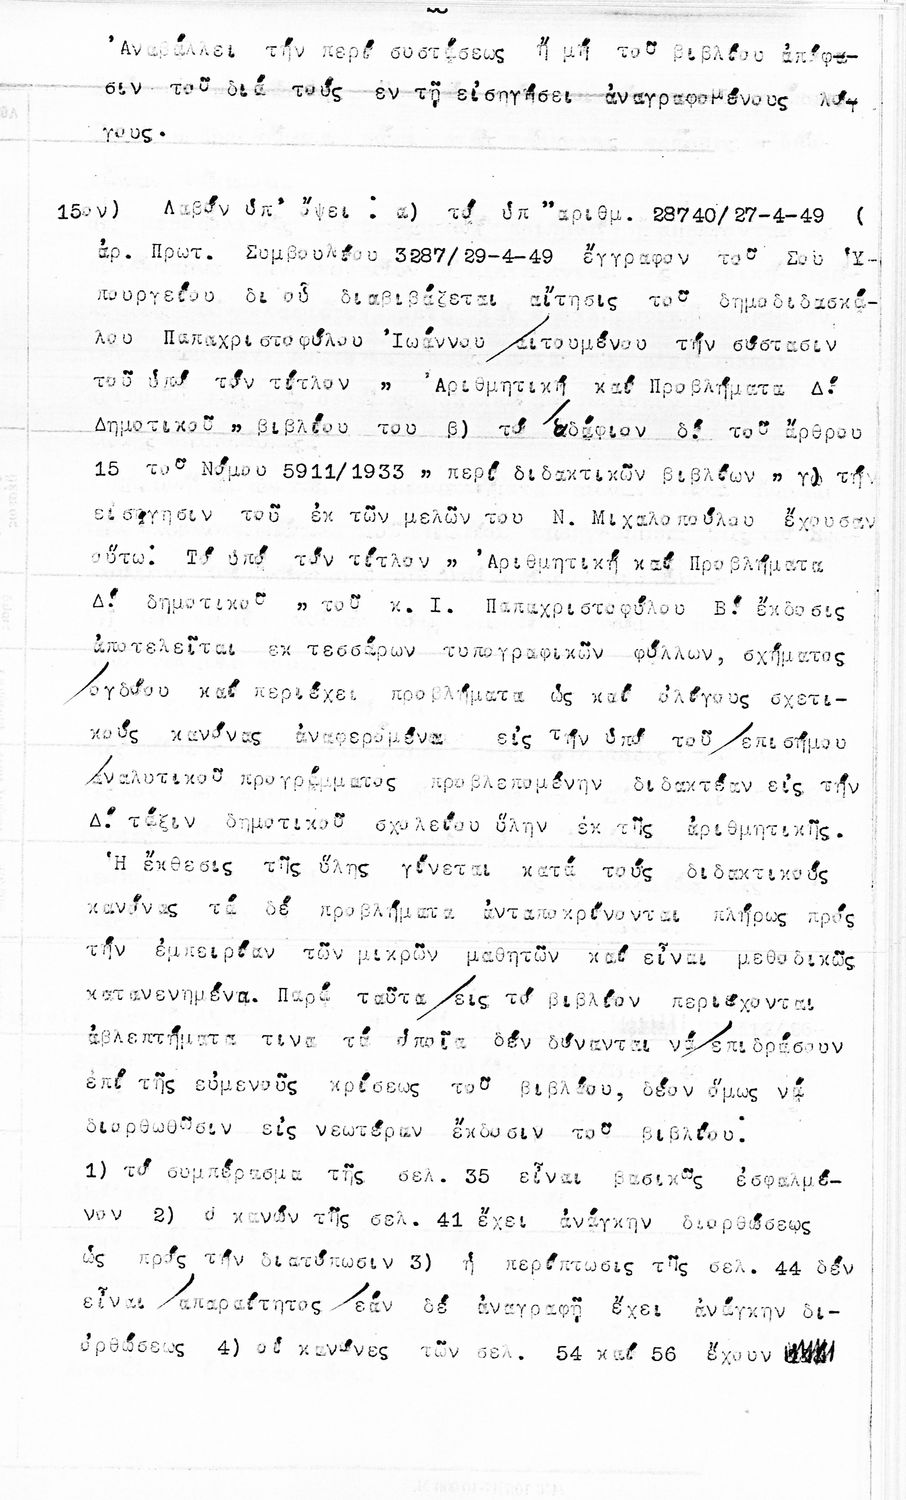 Ἀναβάλλει τήν περί συστάσεως ἤ μή τοῦ βιβλίου ἀπόφα-
σιν τοῦ διά τούς εν τῇ εἰσηγήσει ἀναγραφομένους λό-
γους.
15ον) Λαβόν ὑπ' ὄψει : α) τό ὑπ "αριθμ. 28740/27-4-49 (
ἀρ. Πρωτ. Συμβουλίου 3287/29-4-49 ἔγγραφον τοῦ Σοῦ Ὑ-
πουργείου δι οὗ διαβιβάζεται αἴτησις τοῦ δημοδιδασκά-
λου Παπαχριστοφύλου Ἰωάννου αιτουμένου τήν σύστασιν
τοῦ ὑπό τόν τίτλον " Ἀριθμητική καί Προβλήματα Δ!
Δημοτικοῦ " βιβλίου του β) τό ἐδάφιον δ! τοῦ ἄρθρου
15 τοῦ Νόμου 5911/1933 " περί διδακτικῶν βιβλίων " γ) τήν
εἰσήγησιν τοῦ ἐκ τῶν μελῶν του Ν. Μιχαλοπούλου ἔχουσαν
οὕτω: Τό ὑπό τόν τίτλον " Ἀριθμητική καί Προβλήματα
Δ! δημοτικοῦ " τοῦ κ. Ι. Παπαχριστοφύλου Β! ἔκδοσις
ἀποτελεῖται εκ τεσσάρων τυπογραφικῶν φύλλων, σχήματος
ογδόου καί περιέχει προβλήματα ὡς καί ὀλίγους σχετι-
κούς κανόνας ἀναφερόμενα εἰς τήν ὑπό τοῦ επισήμου
ἀναλυτικοῦ προγράμματος προβλεπομένην διδακτέαν εἰς τήν
Δ! τάξιν δημοτικοῦ σχολείου ὕλην ἐκ τῆς ἀριθμητικῆς.
Ἡ ἔκθεσις τῆς ὕλης γίνεται κατά τούς διδακτικούς
κανόνας τά δέ προβλήματα ἀνταποκρίνονται πλήρως πρός
τήν ἐμπειρίαν τῶν μικρῶν μαθητῶν καί εἶναι μεθοδικῶς
κατανενημένα. Παρά ταῦτα εις τό βιβλίον περιέχονται
ἀβλεπτήματα τινα τά ὁποῖα δέν δύνανται νά επιδράσουν
ἐπί τῆς εὐμενοῦς κρίσεως τοῦ βιβλίου, δέον ὅμως νά
διορθωθοῦσιν εἰς νεωτέραν ἔκδοσιν τοῦ βιβλίου:
1) τό συμπέρασμα τῆς σελ. 35 εἶναι βασικῶς ἐσφαλμέ-
νον 2) ὁ κανών τῆς σελ. 41 ἔχει ἀνάγκην διορθώσεως
ὡς πρός τήν διατύπωσιν 3) ἡ περίπτωσις τῆς σελ. 44 δέν
εἶναι απαραίτητος εάν δέ ἀναγραφῇ ἔχει ἀνάγκην δι-
ορθώσεως 4) οἱ κανόνες τῶν σελ. 54 καί 56 ἔχουν